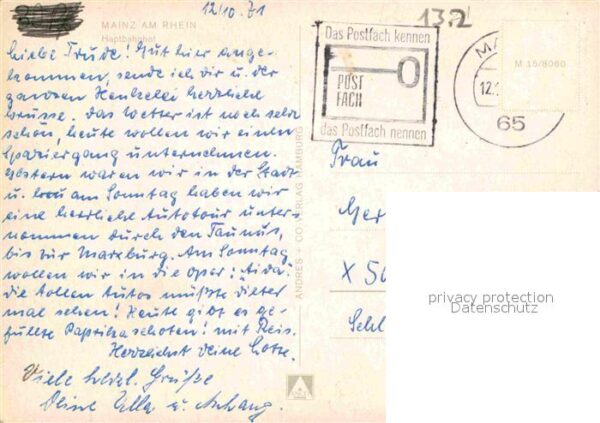 12/10.71
MAINZ AM RHEIN
Hauptbahnhof
Liebe Trude! Gut hier ange-
kommen, sende ich dir u. der
ganzen Henkelei herzliche
Grüsse. Das Wetter ist noch sehr
schön, heute wollen wir einen
Spaziergang unternehmen.
Gestern waren wir in der Stadt
u. am Sonntag haben wir
eine herrliche Autotour unter-
nommen durch den Taunus,
bis zur Marxburg. Am Sonntag
wollen wir in die Oper: "Aida".
die tollen Autos müßte dieter
mal sehen! Heute gibt es ge-
füllte Paprikaschoten! mit Reis.
Herzlichst deine Lotte.
Viele herzl. Grüße
Deine Ella u. Anhang.
ANDRES + CO VERLAG HAMBURG
13.2
Das Postfach kennen
POST
FACH
das Postfach nennen
MA
12.1
65
M 15/8060
Frau
Ger
X 50
Schl
privacy protection
Datenschutz